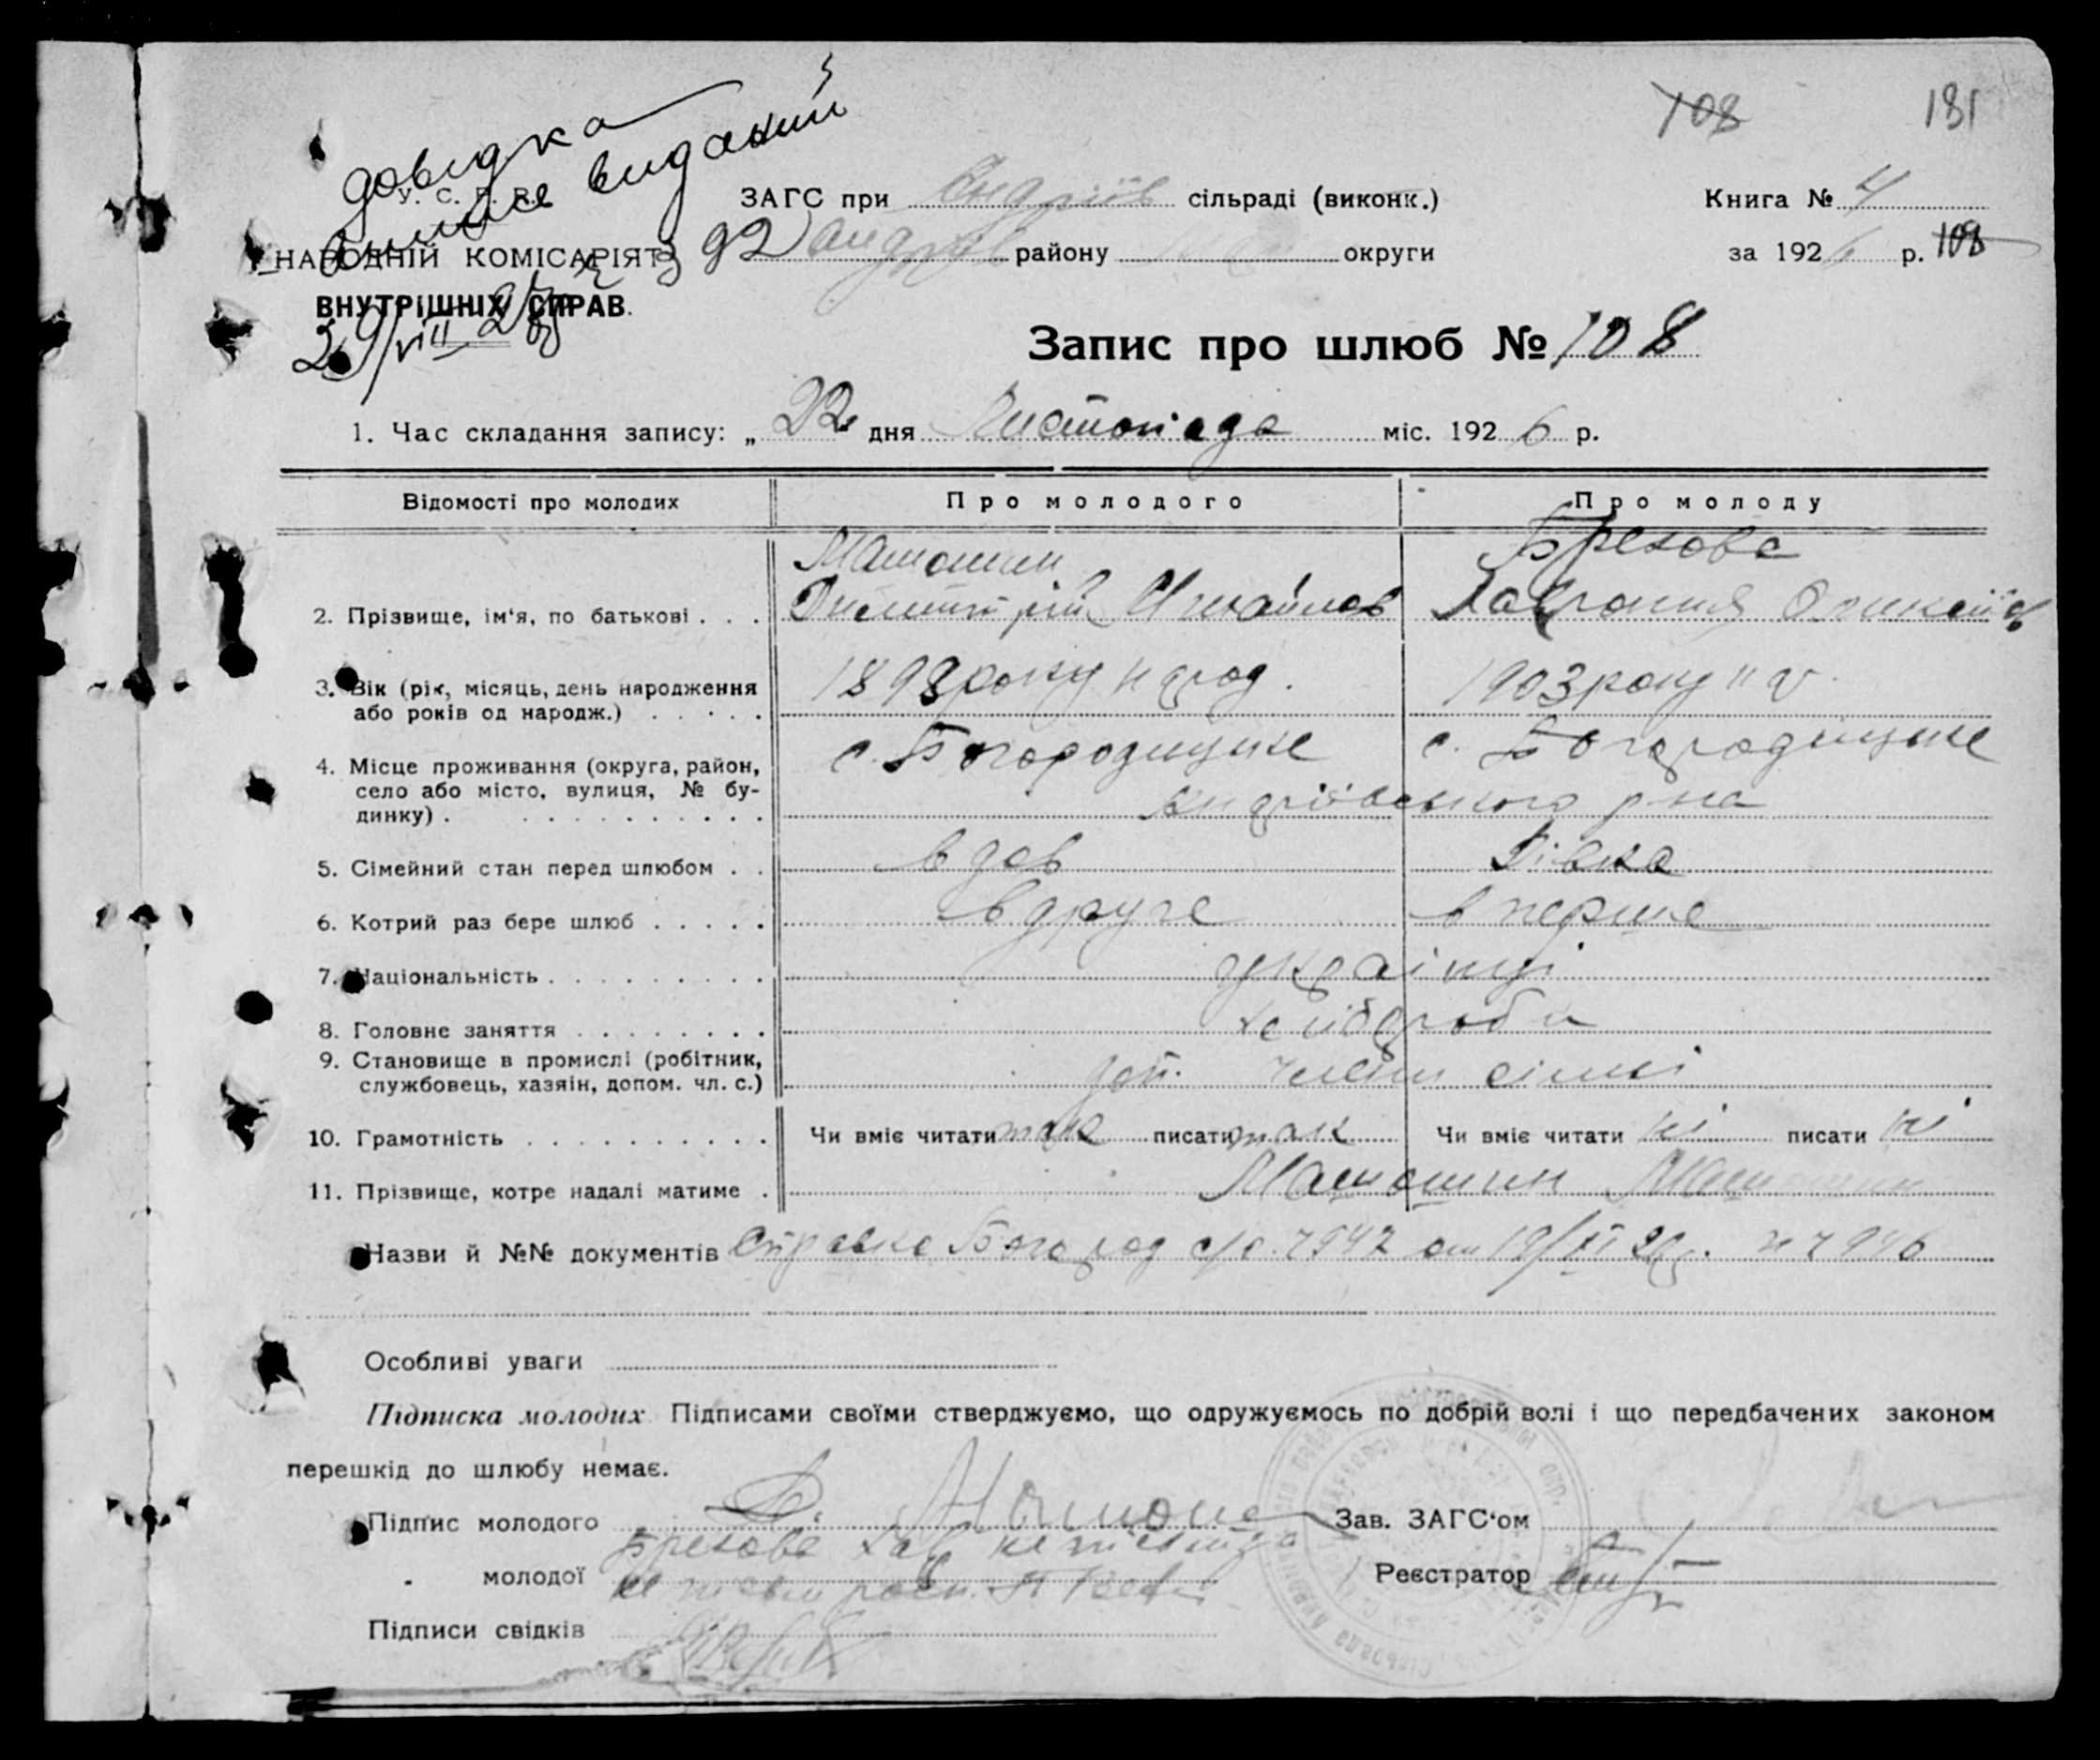 108 181
довідка
видании
У. С. Р. Р.
НАРОДНІЙ КОМІСАРІЯТ
ВНУТРІШНІХ СПРАВ.
29/VIII
ЗАГС при Андріїв сільраді (виконк.)
Андріїв району округи
Книга № 4
за 1926 р. 108
Запис про шлюб № 108
1. Час складання запису: „22" дня Листопада міс. 1926 р.
Відомості про молодих Про молодого Про молоду
2. Прізвище, ім'я, по батькові . . . Матюшин Брехова
Михайлов
3. Вік (рік, місяць, день народження або років од народж.) . . . . . 1898 року народ. 1903 року
4. Місце проживання (округа, район, село або місто, вулиця, № будинку) . с. Богородицьке с. Богородицьке
Андріївського р-на
5. Сімейний стан перед шлюбом . . вдов дівка
6. Котрий раз бере шлюб . . . . . вдруге вперше
7. Національність . . . . . . . . . українці
8. Головне заняття . . . . . . . . хліборобн
9. Становище в промислі (робітник, службовець, хазяїн, допом. чл. с.) доп. члени сімьі
10. Грамотність . . . . . . . . . . Чи вміє читати так писати так Чи вміє читати ні писати ні
11. Прізвище, котре надалі матиме . Матюшин
Назви й №№ документів Справка Богород с/с. от 19/XI 26 р.
Особливі уваги
Підписка молодих Підписами своїми стверджуємо, що одружуємось по добрій волі і що передбачених законом
перешкід до шлюбу немає.
Підпис молодого Д. Зав. ЗАГС'ом
Брехова
„ молодої Реєстратор
Підписи свідків